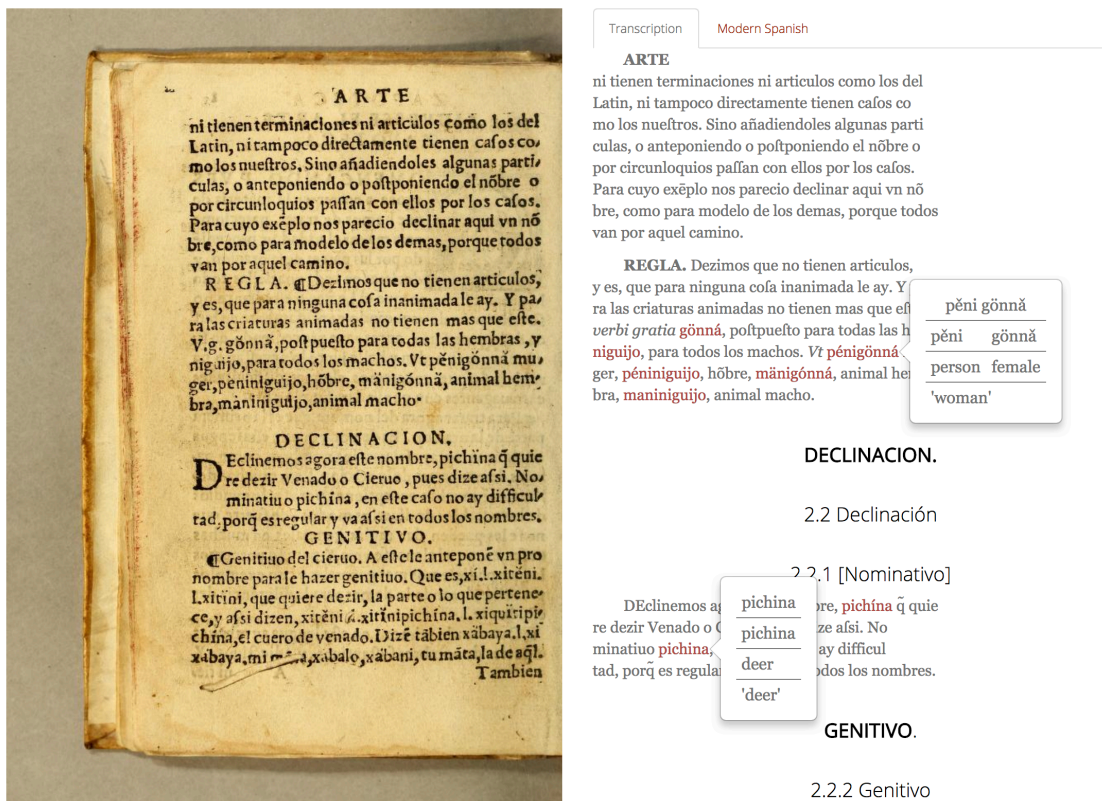 ARTE
ni tienen terminaciones ni articulos como los del
Latin, ni tampoco directamente tienen caſos co,
mo los nueſtros. Sino añadiendoles algunas parti,
culas, o anteponiendo o poſtponiendo el nõbre o
por circunloquios paſſan con ellos por los caſos.
Para cuyo exẽplo nos parecio declinar aqui vn nõ
bre, como para modelo de los demas, porque todos
van por aquel camino.
REGLA. ¶Dezimos que no tienen articulos,
y es, que para ninguna coſa inanimada le ay. Y pa,
ra las criaturas animadas no tienen mas que eſte.
V.g. gönnǎ, poſt pueſto para todas las hembras, y
niguijo, para todos los machos. Vt pĕnigönná mu,
ger, peniniguijo, hõbre, mänigónnã, animal hem,
bra, maniniguijo, animal macho.
DECLINACION.
DEclinemos agora eſte nombre, pichina q̃ quie
re dezir Venado o Cieruo, pues dize aſsi. No,
minatiuo pichina, en eſte caſo no ay difficul,
tad, porq̃ es regular y va aſsi en todos los nombres.
GENITIVO.
¶Genitiuo del cieruo. A eſte le anteponẽ vn pro
nombre para le hazer genitiuo. Que es, xi.l.xitĕni.
l.xitïni, que quiere dezir, la parte o lo que pertene,
ce, y aſsi dizen, xitĕni .xitïnipichína. l. xiquitipi,
chína, el cuero de venado. Dizẽ tãbien xăbaya.l.xi
xăbaya, mi xăbalo, xăbani, tu mãta, la de aq̃l.
Tambien
Transcription
Modern Spanish
ARTE
ni tienen terminaciones ni articulos como los del
Latin, ni tampoco directamente tienen caſos co
mo los nueſtros. Sino añadiendoles algunas parti
culas, o anteponiendo o poſtponiendo el nõbre o
por circunloquios paſſan con ellos por los caſos.
Para cuyo exẽplo nos parecio declinar aqui vn nõ
bre, como para modelo de los demas, porque todos
van por aquel camino.
REGLA. Dezimos que no tienen articulos,
y es, que para ninguna coſa inanimada le ay. Y
ra las criaturas animadas no tienen mas que
verbi gratia gönná, poſtpueſto para todas las
niguijo, para todos los machos. Vt pénigönná
ger, péniniguijo, hõbre, mänigónná, animal
bra, maniniguijo, animal macho.
pěni gönnǎ
pěni gönnǎ
person female
'woman'
DECLINACION.
2.2 Declinación
2.2.1 [Nominativo]
DEclinemos pichína q̃ quie
re dezir Venado o aſsi. No
minatiuo pichina, ay difficul
tad, porq̃ es todos los nombres.
pichina
pichina
deer
'deer'
GENITIVO.
2.2.2 Genitivo